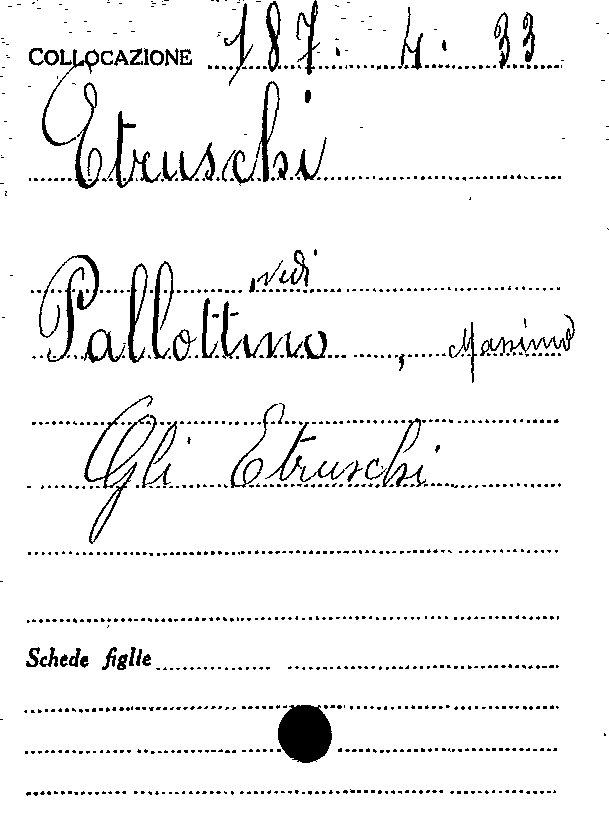 COLLOCAZIONE 187. 4. 33
Etruschi
vedi
Pallottino, Massimo
Gli Etruschi
Schede figlie